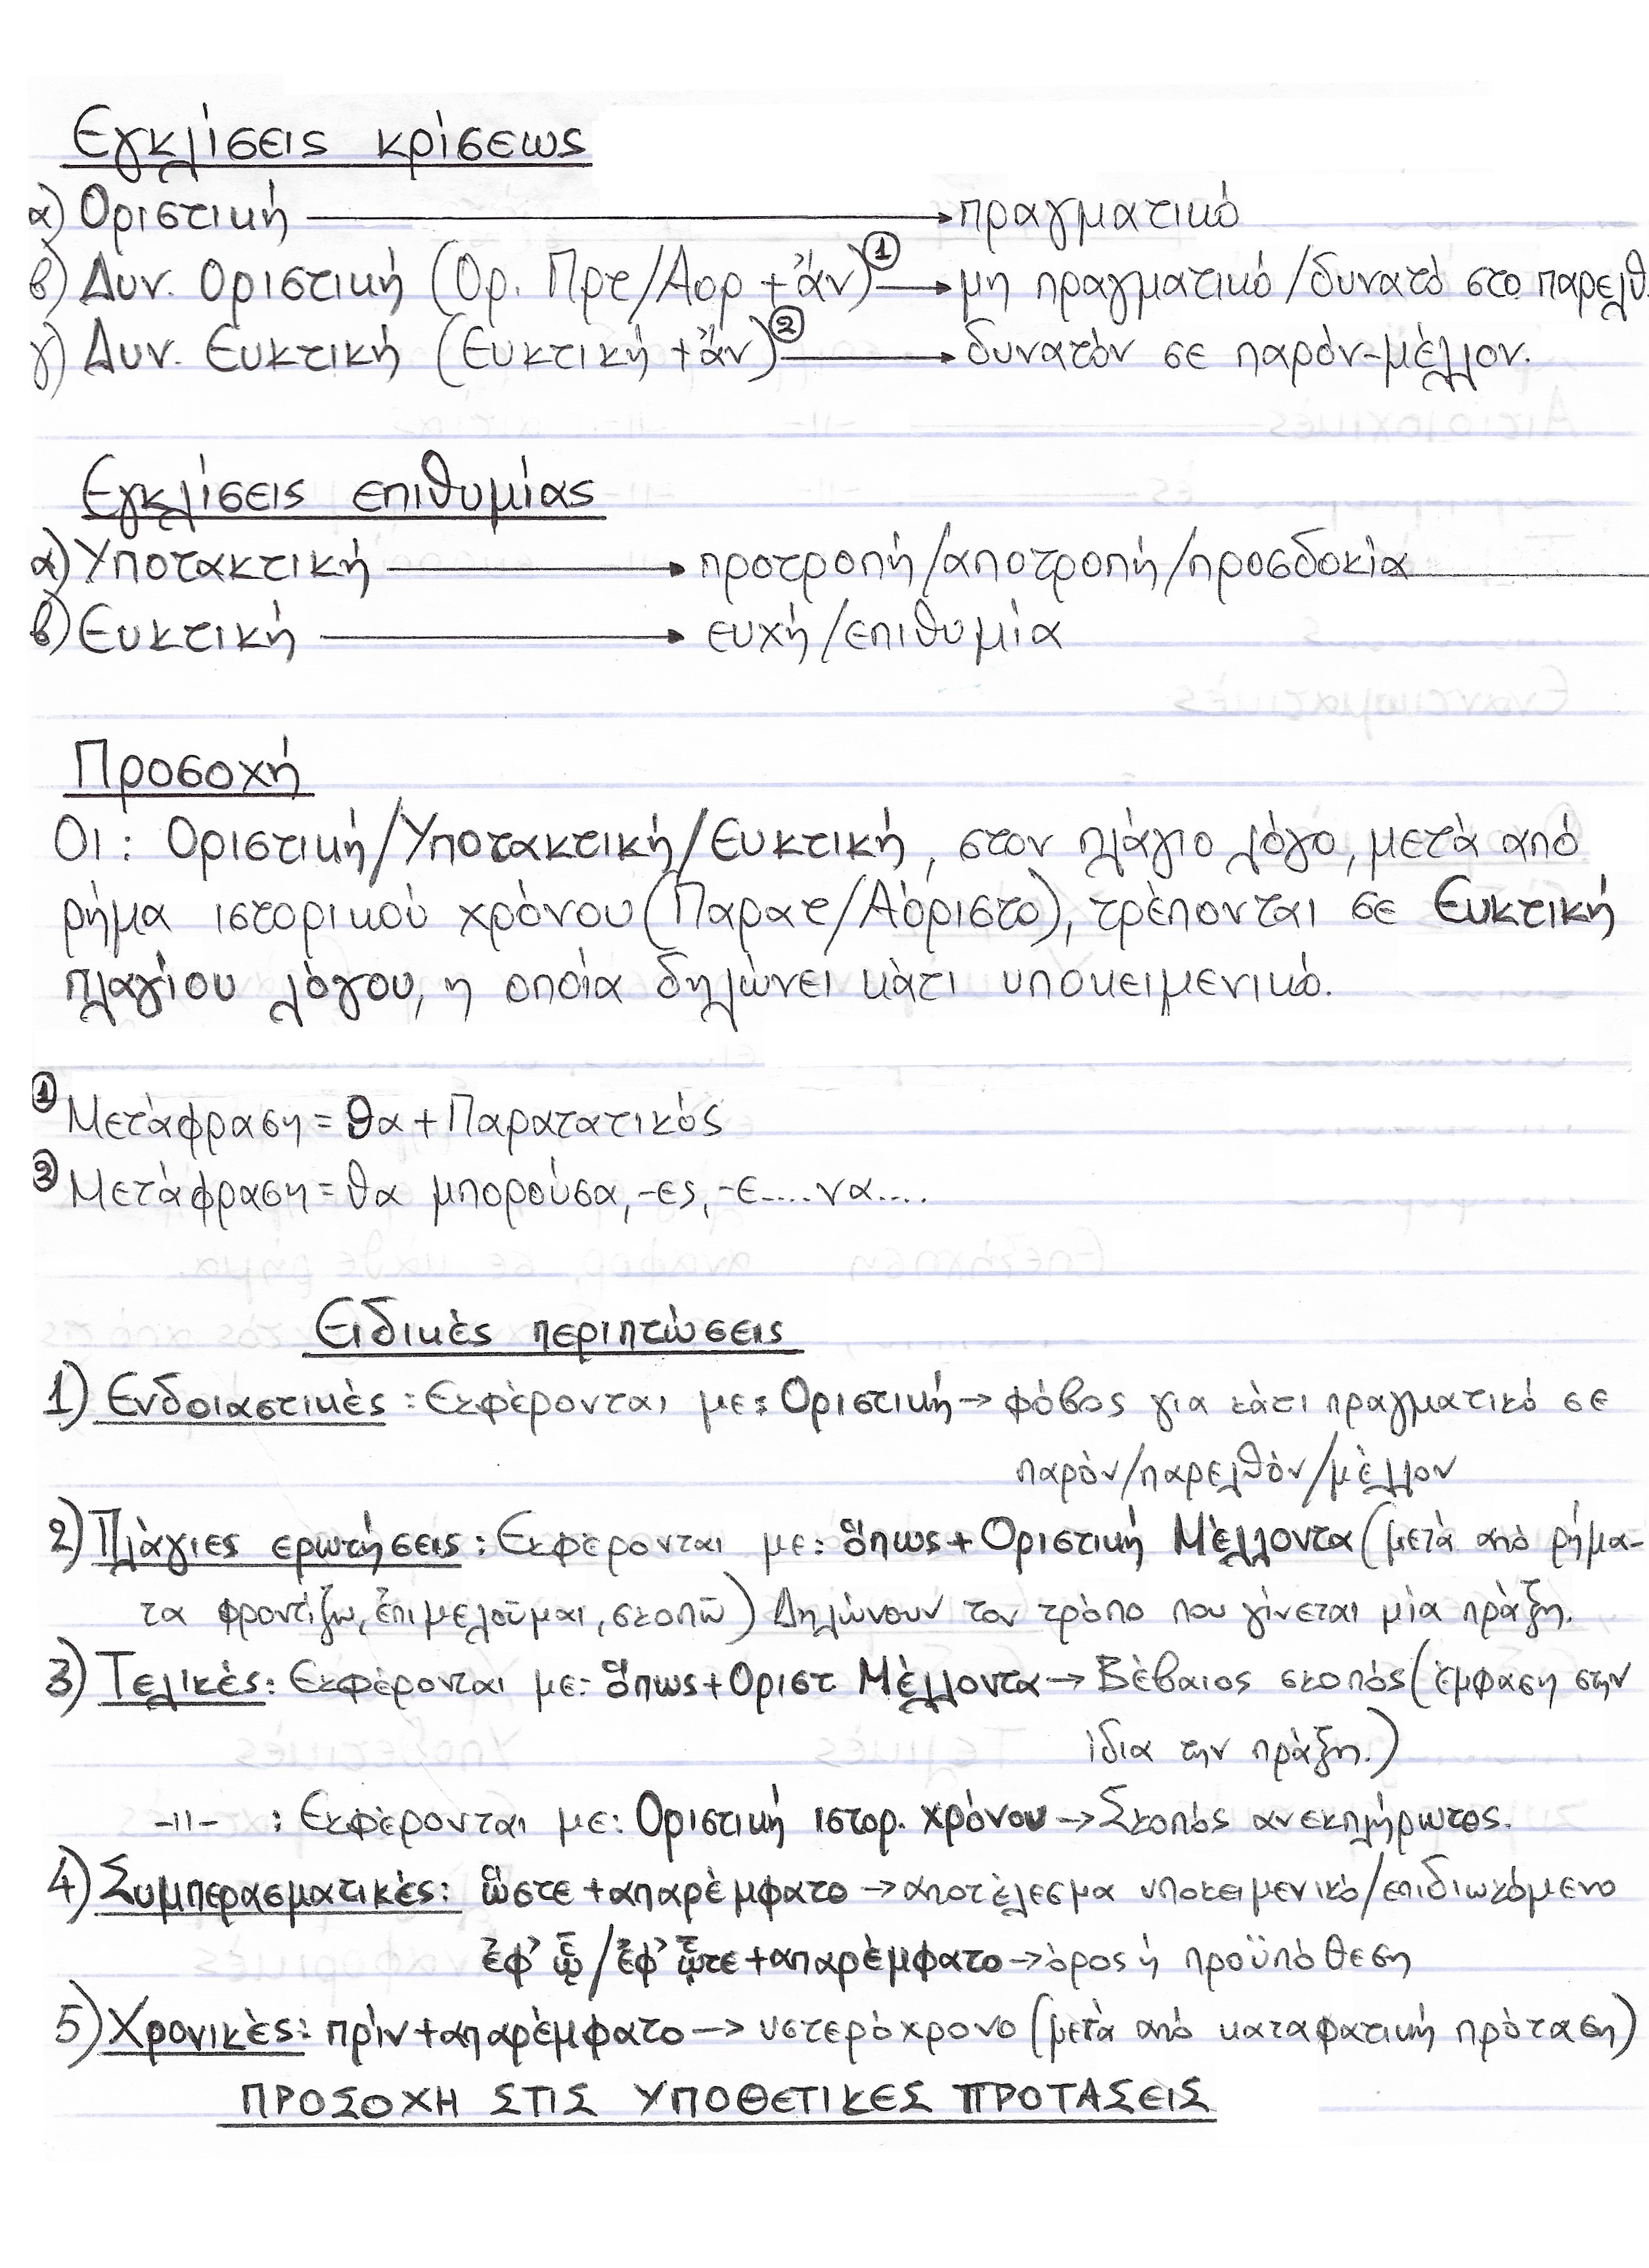 Εγκλίσεις κρίσεως
α) Οριστική → πραγματικό
β) Δυν. Οριστική (Ορ. Πρτ/Αορ + ἄν) ① → μη πραγματικό/δυνατό στο παρελθ.
γ) Δυν. Ευκτική (Ευκτική + ἄν) ② → δυνατόν σε παρόν-μέλλον.
Εγκλίσεις επιθυμίας
α) Υποτακτική → προτροπή/αποτροπή/προσδοκία
β) Ευκτική → ευχή/επιθυμία
Προσοχή
Οι: Οριστική/Υποτακτική/Ευκτική, στον πλάγιο λόγο, μετά από
ρήμα ιστορικού χρόνου (Παρατ/Αόριστο), τρέπονται σε Ευκτική
πλαγίου λόγου, η οποία δηλώνει κάτι υποκειμενικό.
① Μετάφραση = θα + Παρατατικός
② Μετάφραση = θα μπορούσα, -ες, -ε....να....
Ειδικές περιπτώσεις
1) Ενδοιαστικές: Εκφέρονται με: Οριστική → φόβος για κάτι πραγματικό σε
παρόν/παρελθόν/μέλλον
2) Πλάγιες ερωτήσεις: Εκφέρονται με: ὅπως + Οριστική Μέλλοντα (μετά από ρήμα-
τα φροντίζω, ἐπιμελοῦμαι, σκοπῶ) Δηλώνουν τον τρόπο που γίνεται μία πράξη.
3) Τελικές: Εκφέρονται με: ὅπως + Οριστ. Μέλλοντα → Βέβαιος σκοπός (έμφαση στην
ίδια την πράξη.)
-11- : Εκφέρονται με: Οριστική ιστορ. χρόνου → Σκοπός ανεκπλήρωτος.
4) Συμπερασματικές: ὥστε + απαρέμφατο → αποτέλεσμα υποκειμενικό/επιδιωκόμενο
ἐφ' ᾧ/ἐφ' ᾧτε + απαρέμφατο → όρος ή προϋπόθεση
5) Χρονικές: πρίν + απαρέμφατο → υστερόχρονο (μετά από καταφατική πρόταση)
ΠΡΟΣΟΧΗ ΣΤΙΣ ΥΠΟΘΕΤΙΚΕΣ ΠΡΟΤΑΣΕΙΣ